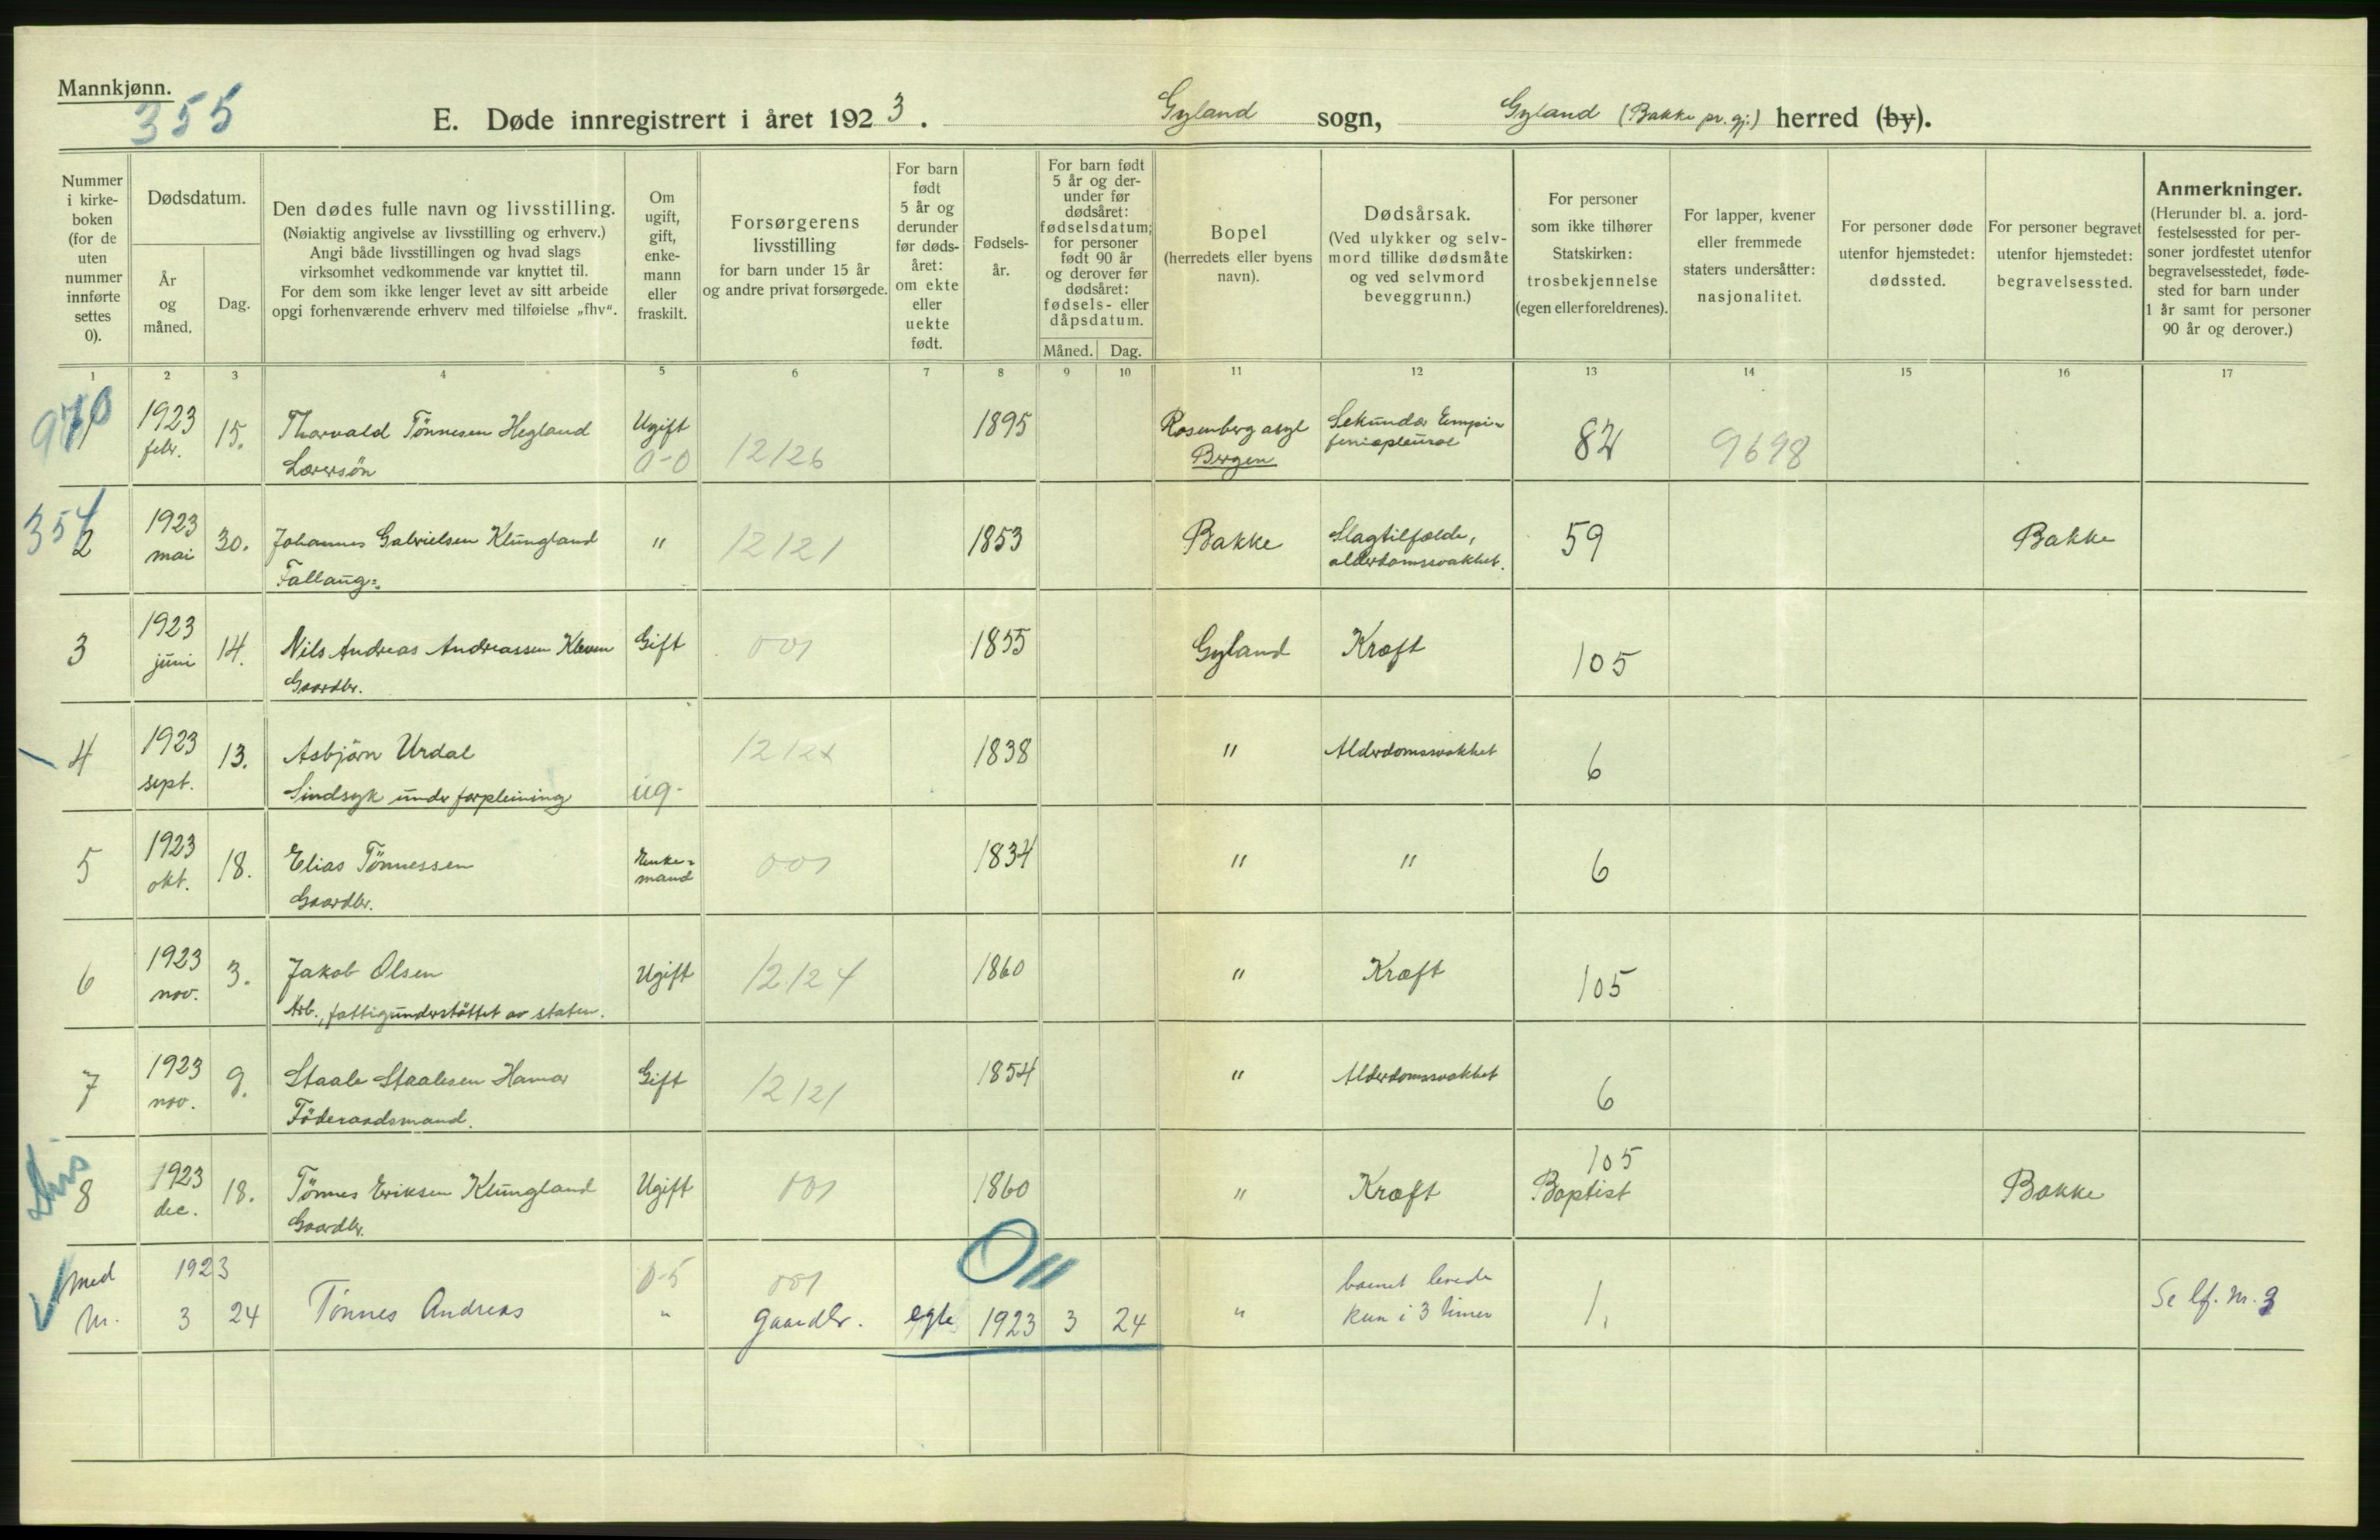 Mannkjønn.
355
E. Døde innregistrert i året 1923. Gyland sogn, Gyland (Bakke pr. gj.) herred (by).
Nummer i kirkeboken (for de uten nummer innførte settes 0).
Dødsdatum.
År og måned.
Dag.
Den dødes fulle navn og livsstilling.
(Nøiaktig angivelse av livsstilling og erhverv.)
Angi både livsstillingen og hvad slags
virksomhet vedkommende var knyttet til.
For dem som ikke lenger levet av sitt arbeide
opgi forhenværende erhverv med tilføielse „fhv“.
Om ugift, gift, enkemann eller fraskilt.
Forsørgerens livsstilling
for barn under 15 år
og andre privat forsørgede.
For barn født 5 år og derunder før dødsåret: om ekte eller uekte født.
Fødselsår.
For barn født 5 år og derunder før dødsåret: fødselsdatum; for personer født 90 år og derover før dødsåret: fødsels- eller dåpsdatum.
Måned. Dag.
Bopel
(herredets eller byens navn).
Dødsårsak.
(Ved ulykker og selvmord tillike dødsmåte og ved selvmord beveggrunn.)
For personer som ikke tilhører Statskirken: trosbekjennelse (egen eller foreldrenes).
For lapper, kvener eller fremmede staters undersåtter: nasjonalitet.
For personer døde utenfor hjemstedet: dødssted.
For personer begravet utenfor hjemstedet: begravelsessted.
Anmerkninger.
(Herunder bl. a. jordfestelsessted for personer jordfestet utenfor begravelsesstedet, fødested for barn under 1 år samt for personer 90 år og derover.)
1 2 3 4 5 6 7 8 9 10 11 12 13 14 15 16 17
1923 febr. 15. Thorvald Tönnesen Hegland Ugift 1895 Rosenberg asyl Sekundær
Lærersön 0-0 12126 Bergen 82 9698
354
2 1923 mai 30. Johannes Gabrielsen Klungland " 12121 1853 Bakke Slagtilfælde, alderdomssvakhet. 59 Bakke
3 1923 juni 14. Nils Andreas Andreassen Kleven Gift 001 1855 Gyland Kræft 105
Gaardbr.
4 1923 sept. 13. Asbjörn Urdal 1838 " Alderdomssvakhet 6
Sindsyk under forpleining ug.
5 1923 okt. 18. Elias Tönnessen Enkemand 001 1834 " " 6
Gaardbr.
6 1923 nov. 3. Jakob Olsen Ugift 12124 1860 " Kræft 105
Arb., fattigunderstöttet av staten.
7 1923 nov. 9. Staale Staalesen Hamar Gift 12121 1854 " Alderdomssvakhet 6
Föderaadsmand.
8 1923 dec. 18. Tönnes Eriksen Klungland Ugift 001 1860 " Kræft 105 Baptist Bakke
Gaardbr.
med Nr. 1923 3 24 Tönnes Andreas 0-5 " 001 gaardbr. egte 1923 3 24 " barnet levede kun i 3 timer 1. Se lf. Nr. 3